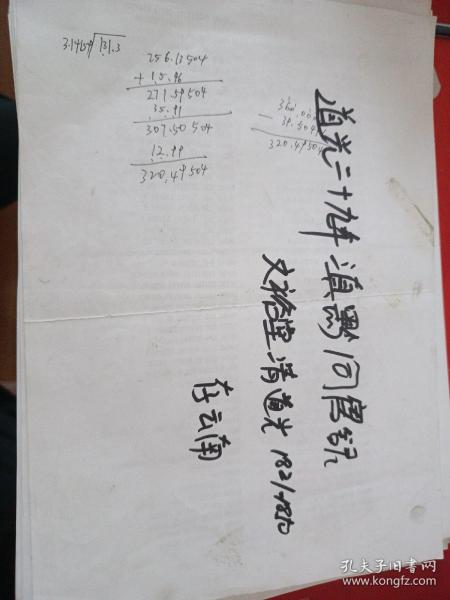 道光二十九年滇黔同官录
文裕堂 清道光 1821-1850
存云南
131.3
256.13504
+ 15.96
271.59504
35.91
307.50504
12.99
320.49504
39.504
320.49504
孔夫子旧书网
www.kongfz.com